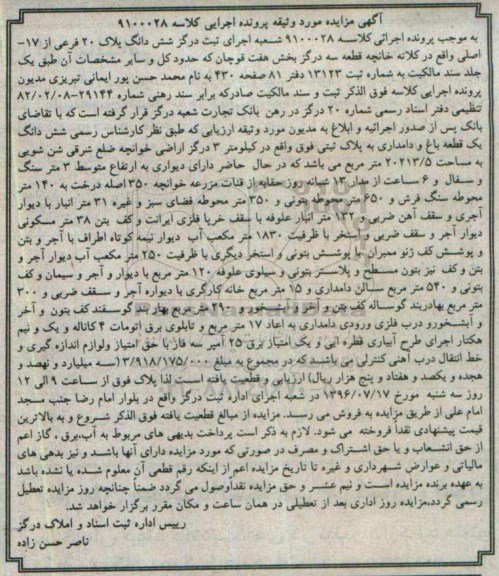 آگهی مزایده مورد وثیقه پرونده اجرایی کلاسه ۹۱۰۰۰۲۸
به موجب پرونده اجرائی کلاسه ۹۱۰۰۰۲۸ شعبه اجرای ثبت درگز شش دانگ پلاک ۲۰ فرعی از ۱۷-
اصلی واقع در کلاته خانچه قطعه سه درگز بخش هفت قوچان که حدود کل و سایر مشخصات آن طبق یک
جلد سند مالکیت به شماره ثبت ۱۳۱۲۳ دفتر ۸۱ صفحه ۴۳۰ به نام محمد حسن پور ایمانی تبریزی مدیون
پرونده اجرایی کلاسه فوق الذکر ثبت و سند مالکیت صادرکه برابر سند رهنی شماره ۲۹۱۴۴-۸۲/۰۲/۰۸
تنظیمی دفتر اسناد رسمی شماره ۲۰ درگز در رهن بانک تجارت شعبه درگز قرار گرفته است که با تقاضای
بانک پس از صدور اجرائیه و ابلاغ به مدیون مورد وثیقه ارزیابی که طبق نظر کارشناس رسمی شش دانگ
یک قطعه باغ و دامداری به پلاک ثبتی فوق واقع در کیلومتر ۳ درگز اراضی خوانچه ضلع شرقی شن شویی
به مساحت ۲۰۲۱۳/۵ متر مربع می باشد که در حال حاضر دارای دیواری به ارتفاع متوسط ۳ متر سنگ
و سفال و ۶ ساعت از مدار ۱۳ شبانه روز حقابه از قنات مزرعه خوانچه ۳۵۰ اصله درخت به ۱۴۰ متر
محوطه سنگ فرش و ۶۵۰ متر محوطه بتونی و ۳۵۰ متر محوطه فضای سبز و غیره ۳۱ متر انبار با دیوار
آجری و سقف آهن ضربی و ۱۳۲ متر انبار علوفه با سقف خرپا فلزی ایرانت و کف بتن ۳۸ متر مسکونی
دیوار آجر و سقف ضربی و استخر با ظرفیت ۱۸۳۰ متر مکعب آب دیوار نیمه کوتاه اطراف با آجر و بتن
و پوشش کف ژئو ممبران با پوشش بتونی و استخر دیگری با ظرفیت ۲۵۰ متر مکعب آب دیوار آجر و
بتن و کف نیز بتون مسطح و پلاستر بتونی و سیلوی علوفه ۱۲۰ متر مربع با دیوار و آجر و سیمان و کف
بتونی و ۵۴۰ متر مربع سالن دامداری و ۱۵ متر مربع خانه کارگری با دیواره آجر و سقف ضربی و ۳۰۰
متر مربع بهاربند گوساله کف بتن و آخر و آبشخورو ۲۹۰ متر مربع بهار بند گوسفند کف بتون و آخر
و آبشخورو درب فلزی ورودی دامداری به اعاد ۱۷ متر مربع و تابلوی برق اتومات ۴ کاناله و یک و نیم
هکتار اجرای طرح آبیاری قطره ایی و یک امتیاز برق ۲۵ آمپر سه فاز با حق امتیاز ولوازم اندازه گیری و
خط انتقال درب آهنی کنترلی می باشند که در مجموع به مبلغ ۳/۹۱۸/۱۷۵/۰۰۰(سه میلیارد و نهصد و
هجده و یکصد و هفتاد و پنج هزار ریال) ارزیابی و قطعیت یافته است لذا پلاک فوق از ساعت ۹ الی ۱۲
روز سه شنبه مورخ ۱۳۹۶/۰۷/۱۷ در شعبه اجرای اداره ثبت درگز واقع در بلوار امام رضا جنب مسجد
امام علی از طریق مزایده به فروش می رسد. مزایده از مبالغ قطعیت یافته فوق الذکر شروع و به بالاترین
قیمت پیشنهادی نقداً فروخته می شود. لازم به ذکر است پرداخت بدیهی های مربوط به آب،برق ، گاز اعم
از حق انشعاب و یا حق اشتراک و مصرف در صورتی که مورد مزایده دارای آنها باشد و نیز بدهی های
مالیاتی و عوارض شهرداری و غیره تا تاریخ مزایده اعم از اینکه رقم قطعی آن معلوم شده یا نشده باشد
به عهده برنده مزایده است و نیم عشر و حق مزایده نقداوصول می گردد ضمناً چنانچه روز مزایده تعطیل
رسمی گردد،مزایده روز اداری بعد از تعطیلی در همان ساعت و مکان مقرر برگزار خواهد شد.
رییس اداره ثبت اسناد و املاک درگز
ناصر حسن زاده